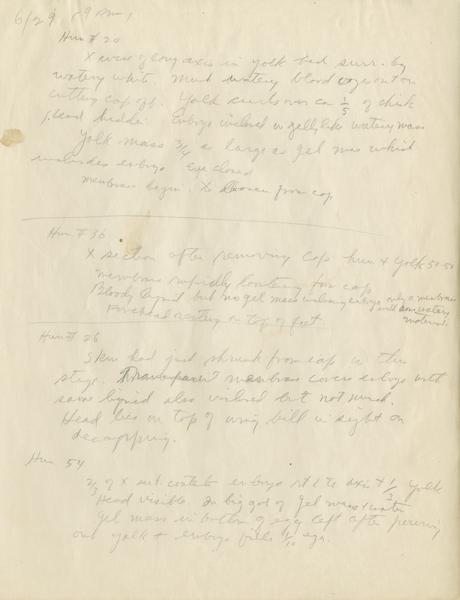 6/29 9 am
Hun # 20
X area of long axis in yolk bed surr. by
watery white. Much watery blood oozes out on
cutting cap off. Yolk curls over ca 1/5 of chick
head hidden. Embryo inclosed in jelly like watery mass
Yolk mass 3/4 as large as gel mass which
includes embryo Eye closed
membrane begin. to loosen from cap
Hun # 36
X section after removing cap hun + yolk 50-50
membrane rapidly loosening from cap
Bloody liquid but no gel mass inclosing embryo only a membrane
with some watery
material.
resting on top of feet.
Hun # 26
Skin had just shrunk from cap in this
stage. Transparent membrane covers embryo with
some liquid also inclosed but not much.
Head lies on top of wing bill in sight on
decapping.
Hun 54
2/3 of X sect. contents embryo rt to axis + 1/3 yolk
Head visible. In big gob of gel mass + water
gel mass in bottom of egg left after pouring
out yolk + embryo fills 1/10 egg.